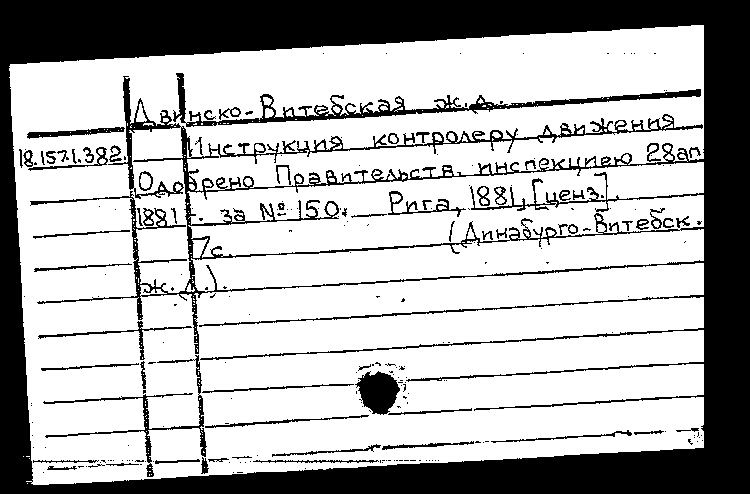 Двинско-Витебская ж.д.
18.157.1.382. Инструкция контролеру движения
Одобрено Правительств. инспекциею 28 ап
1881 г. за № 150. Рига, 1881, [ценз.].
7с. (Динабурго-Витебск.
ж.д.).